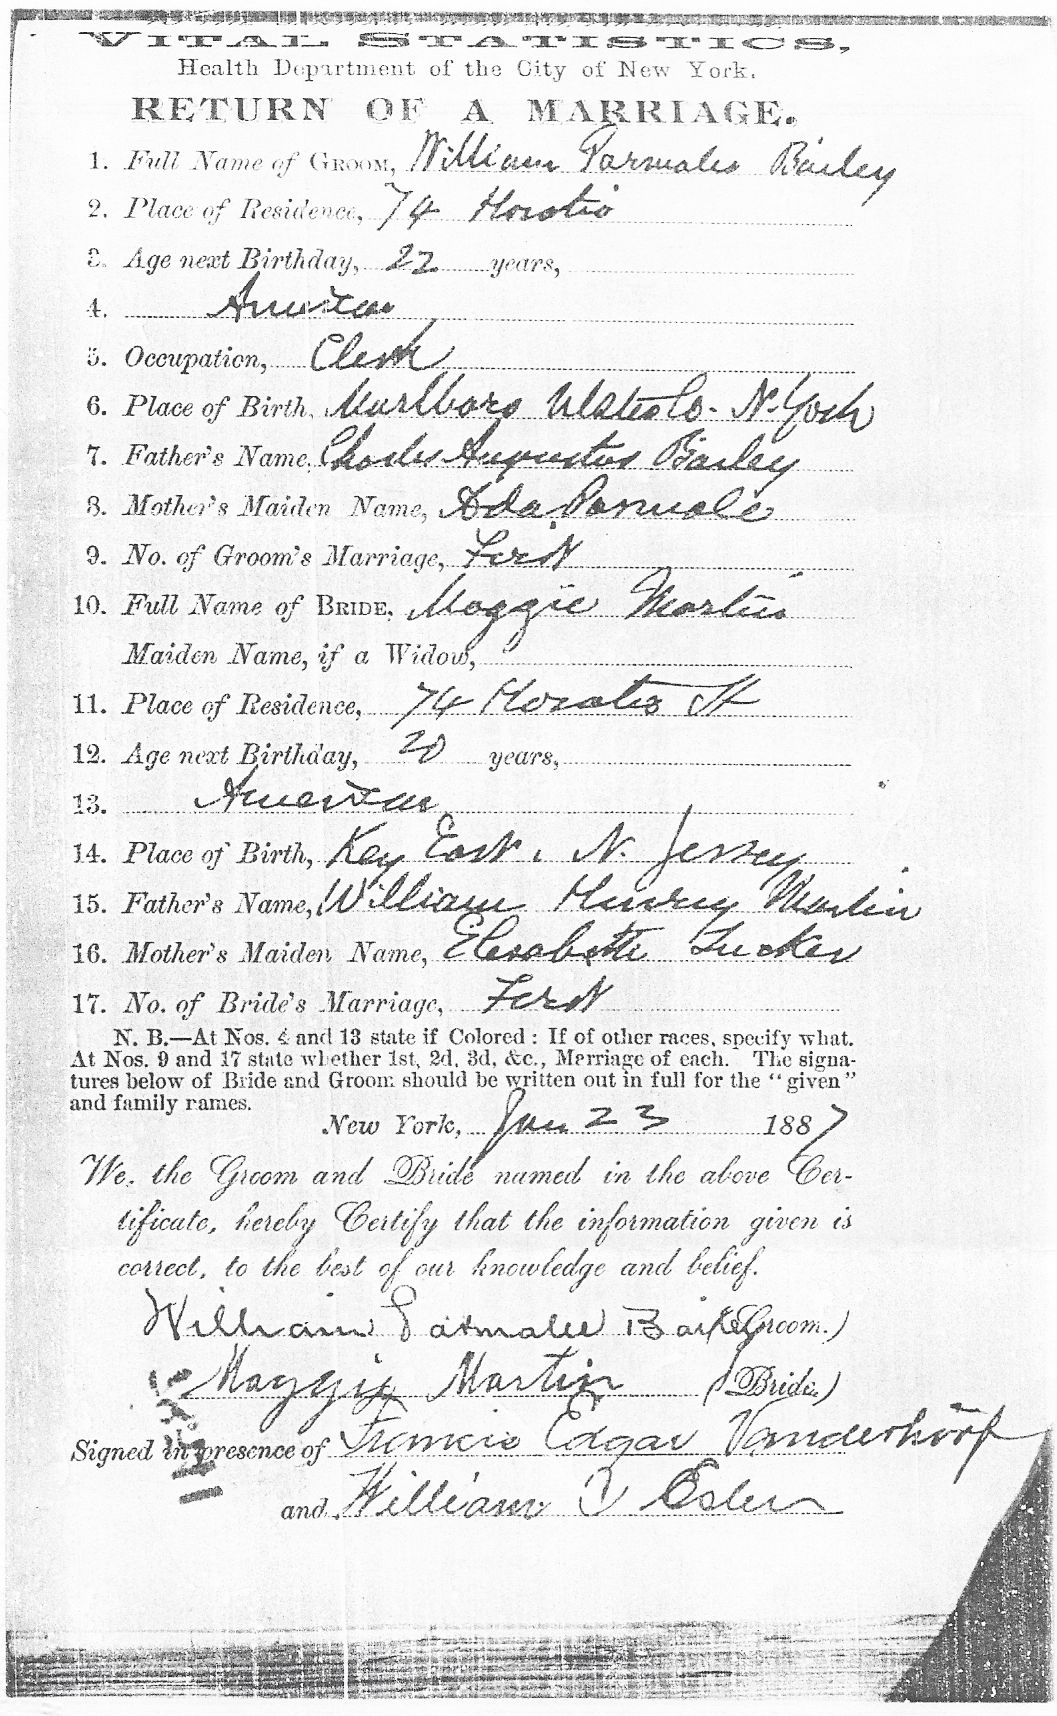 VITAL STATISTICS,
Health Department of the City of New York.
RETURN OF A MARRIAGE.
1. Full Name of GROOM, William Parmalee Bailey
2. Place of Residence, 74 Horatio
3. Age next Birthday, 22 years,
4. American
5. Occupation, Clerk
6. Place of Birth, Marlboro Ulster Co. N. York
7. Father's Name, Charles Augustus Bailey
8. Mother's Maiden Name, Ada Parmale
9. No. of Groom's Marriage, First
10. Full Name of BRIDE, Maggie Martin
Maiden Name, if a Widow,
11. Place of Residence, 74 Horatio St
12. Age next Birthday, 20 years,
13. American
14. Place of Birth, Key East, N. Jersey
15. Father's Name, William Henry Martin
16. Mother's Maiden Name, Elisabeth Tucker
17. No. of Bride's Marriage, First
N. B.—At Nos. 4 and 13 state if Colored: If of other races, specify what.
At Nos. 9 and 17 state whether 1st, 2d, 3d, &c., Marriage of each. The signa-
tures below of Bride and Groom should be written out in full for the "given"
and family names.
New York, Jan 23 1887
We, the Groom and Bride named in the above Cer-
tificate, hereby Certify that the information given is
correct, to the best of our knowledge and belief.
William Parmalee Bailey (Groom.)
Maggie Martin (Bride.)
Signed in presence of Francis Edgar Vanderhoof
and William Esler